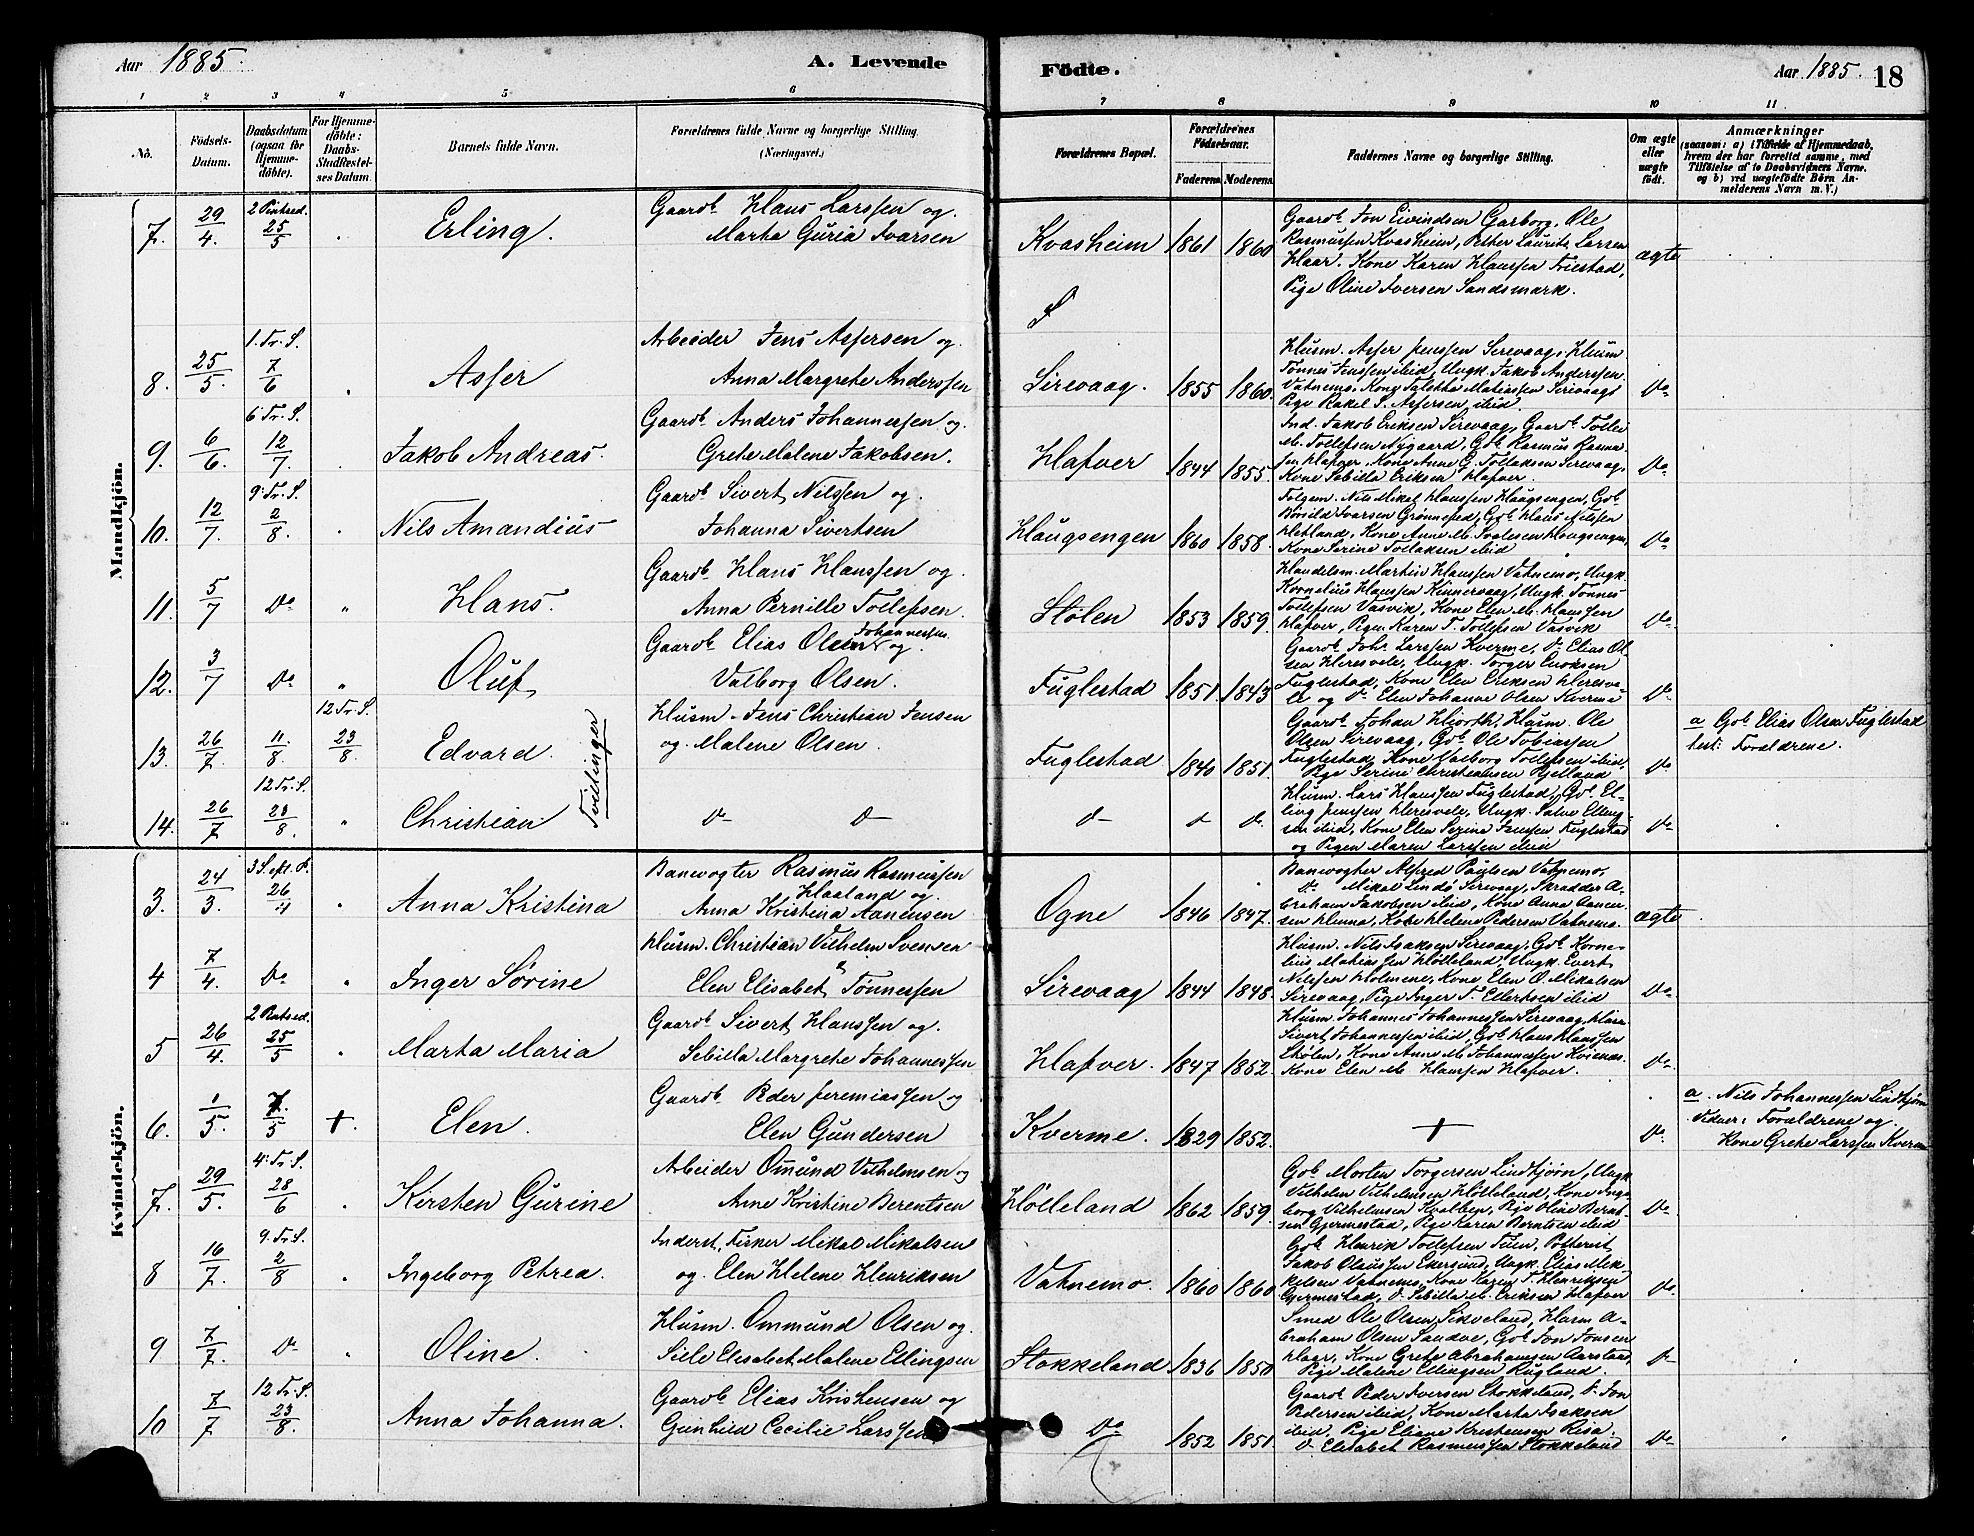 Aar 1885. A. Levende
Födte. Aar 1885. 18
1 2 3 4 5 6 7 8 9 10 11
No.
Födsels-Datum.
Daabsdatum (ogsaa for Hjemme-döbte).
For Hjemme-döbte: Daabs-Stadfæstel-ses Datum.
Barnets fulde Navn.
Forældrenes fulde Navne og borgerlige Stilling. (Næringsvei.)
Forældrenes Bopæl.
Forældrenes Födselsaar.
Faderens. Moderens.
Faddernes Navne og borgerlige Stilling.
Om ægte eller uægte födt.
Anmærkninger
(saasom: a) i Tilfælde af Hjemmedaab, hvem der har forrettet samme, med Tilföielse af to Daabsvidners Navne, og b) ved uægtefödte Börn Anmelderens Navn m. V.)
Mandkjön.
7. 29/4. 2 Pintsed. 25/5 Erling.
Gaardb. Hans Larssen og
Marta Guria Ivarsen
Kvasheim 1861 1860
Gaardb. Jon Eivindsen Garborg, Ole
Rasmussen Kvasheim, Petter Laurits Larsen
Haar. Kone Karen Hanssen Friestad,
Pige Oline Iversen Sandsmark.
ægte
8. 25/5. 1. Tr. S. 7/6 Asser
Arbeider Jens Assersen og
Anna Margrete Anderssen
Sirevaag. 1855 1860
Husm. Asser Jenssen Sirevaag, Husm
Tønnes Jenssen ibid, Ungk. Jakob Anderssen
Vatnemo, Kone Talettha Matiassen Sirevaag
Pige Rakel S. Assersen ibid.
Do
9. 6/6. 6 Tr. S. 12/7. Jakob Andreas.
Gaardb. Anders Johannessen og
Grete Malene Jakobsen.
Hafver 1844 1855
Ind. Jakob Eriksen Sirevaag, Gaardb. Tollef
M. Tollefsen Nygaard, Gb. Rasmus
Hafver, Kone Anne G. Tollaksen Sirevaag,
Kone Sebilla Eriksen Hafver.
Do
10. 12/7. 9. Tr. S. 2/8. Nils Amandius
Gaardb. Sivert Nilssen og
Johanna Sivertsen
Haugsengen 1860 1858.
Nils Mikal Hanssen Haugsengen, Gb.
Ivarsen Grønnestad, Gb. Hans Nilssen
Hetland, Kone Anne M. Haugsengen,
Kone Serine Tollaksen ibid
Do
11. 5/7 Do Hans.
Gaardb. Hans Hanssen og
Anna Pernille Tollefsen.
Stølen 1853 1859.
Handelsm. Martin Hanssen Vatnemo, Ungk.
Kornelius Hanssen Kinnervaag, Ungk. Tønnes
Tollefsen Vasvik, Kone Elen M. Hanssen
Hafver, Pigen Karen T. Tollefsen Vasvik
Do
12. 3/7 Do Oluf
Gaardb. Elias Olsen Johannessen og
Valborg Olsen
Fuglestad 1851. 1843
Gaardb. Joh. Larssen Kverme, Do Elias Ol-
sen Heresvele, Ungk. Torger
Fuglestad, Kone Elen Eriksen Heresve-
le og Do Elen Johanne Olsen Kverme
Do
13. 26/7. 11./8. 12 Tr. S. 23/8 Edvard. Tvillinger
Husm. Jens Christian Jensen
og Malene Olsen.
Fuglestad 1840 1851
Gaardb. Johan Hjorth, Husm. Ole
Olsen Sirevaag, Gb. Ole Tobiassen
Fuglestad, Kone Valborg Tollefsen ibid,
Pige Serine Christiansen Hjelland
Do
a Gb. Elias Olsen Fuglestad
test: Forældrene.
14. 26/7 12 Tr. S. 23/8. Christian
Do Do
Do Do Do
Husm. Lars Hanssen Fuglestad, Gb. El-
ling Jenssen Heresvele, Ungk. Salve Elling-
sen ibid, Kone Elen Serine Jenssen Fuglestad
og Pigen Maren Larssen ibid
Do
Kvindekjön.
3. 24/3. 3 S. eft. P. 26/4 Anna Kristina
Banevogter Rasmus Rasmussen
Haaland og
Anna Kristina Aanensen
Ogne 1846 1847.
Banevogter Alfred Paulsen Vatnemo,
Do Mikal Lindø Sirevaag, Skrædder A-
braham Jakobsen ibid, Kone Anna Aanen-
sen, Kone Helene Pedersen Vatnemo
ægte
4 7/4. Do Inger Sørine
Husm. Christian Vilhelm Svensen
Elen Elisabet Tønnessen
Sirevaag 1844 1848.
Husm. Nils Isaksen Sirevaag, Gb. Korne-
lius Matiassen Hölleland, Ungk. Evert
Nilssen Holmene, Kone Elen O. Mikalsen
Sirevaag, Pige Inger T. Eilertsen ibid
Do
5 26/4. 2 Pintsed. 25/5 Marta Maria
Gaardb. Sivert Hanssen og
Sebilla Margrete Johannessen
Hafver. 1847 1852.
Husm. Johannes Johannessen Sirevaag, Husm
Sivert Johannessen ibid, Gb. Hans Hanssen
Stølen, Kone Anne M. Johannessen
Kone Elen M. Hanssen Hafver.
Do
6. 1/5. 7./5 +. Elen.
Gaardb. Peder Jeremiassen og
Elen Gundersen
Kverme. 1829 1852.
+
Do
a. Nils Johannessen Lindtjørn
Vidner: Forældrene og
Kone Grete Larssen Kverme
7. 29/5. 4. Tr. S. 28/6 Kirsten Gurine
Arbeider Omund Vilhelmsen og
Anne Kristine Berentsen
Hölleland 1862 1859.
Gb. Morten Torgersen Lindtjørn, Ungk
Vilhelm Vilhelmsen Hölleland, Kone Inge-
borg Vilhelmsen, Pige Oline Bernt-
sen Gjermestad, Pige Karen Berntsen ibid
Do
8 16/7. 9. Tr. S. 2/8 Ingeborg Petrea.
Inderst, Fisker Mikal Mikalsen
og Elen Helene Henriksen
Vatnemo. 1860 1860
Gb. Henrik Tollefsen Tuen, Pottemt
Jakob Olaussen Ekersund, Ungk. Elias Mik-
kelsen Vatnemo, Kone Karen T. Henriksen
Gjermestad, Do Sebilla M. Eriksen Hafver
Do
9 7/7. Do Oline.
Husm. Ommund Olsen og
Siele Elisabet Malene Ellingsen
Stokkeland 1836 1850
Smed Ole Olsen Sikveland, Husm A-
braham Olsen Sandve, Gb. Jon Jonsen
Haar, Kone Grete Abrahamsen Aarstad,
Pige Malene Ellingsen Rugland
Do
10 7/7 12 Tr. S. 23/8. Anna Johanna.
Gaardb. Elias Kristensen og
Gunhild Cecilie Larssen
Do 1852 1851
Gaardb. Peder Iversen Stokkeland, Do Jon
Pedersen ibid, Kone Marta Isaksen
ibid, Pige Eliane Kristensen Risa.
Do Elisabet Rasmussen Stokkeland
Do